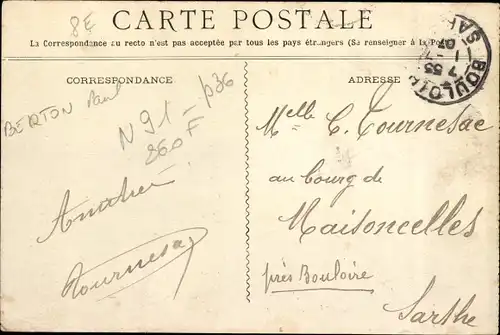 8E
CARTE POSTALE
La Correspondance au recto n'est pas acceptée par tous les pays étrangers (Se renseigner à la Pos
CORRESPONDANCE
ADRESSE
BOULOIRE
SAR
7 55
BERTON Paul
N 91 - p36
860F
Tournesac
Melle C. Tournesac
au bourg de
Maisoncelles
près Bouloire
Sarthe